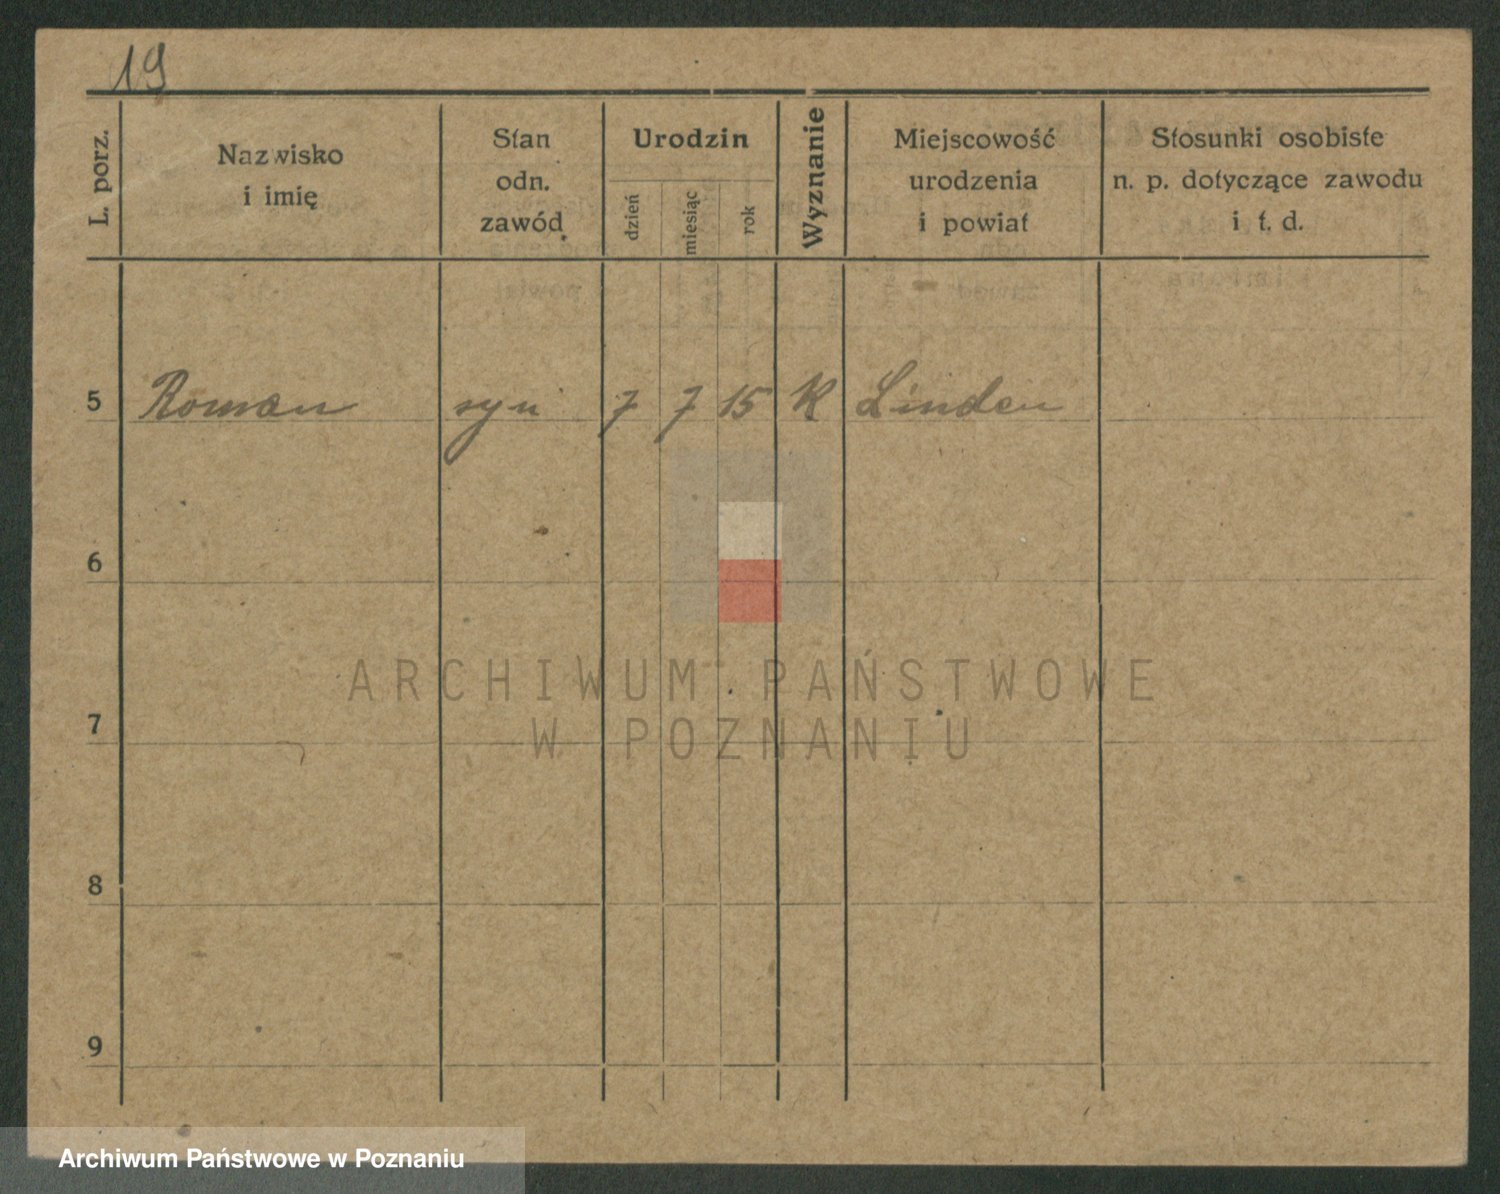 19
L. porz.
Nazwisko
i imię
Stan
odn.
zawód
Urodzin
dzień
miesiąc
rok
Wyznanie
Miejscowość
urodzenia
i powiat
Stosunki osobiste
n. p. dotyczące zawodu
i t. d.
5 Roman syn 7 7 15 K Linden
6
7
8
9
ARCHIWUM PAŃSTWOWE
W POZNANIU
Archiwum Państwowe w Poznaniu